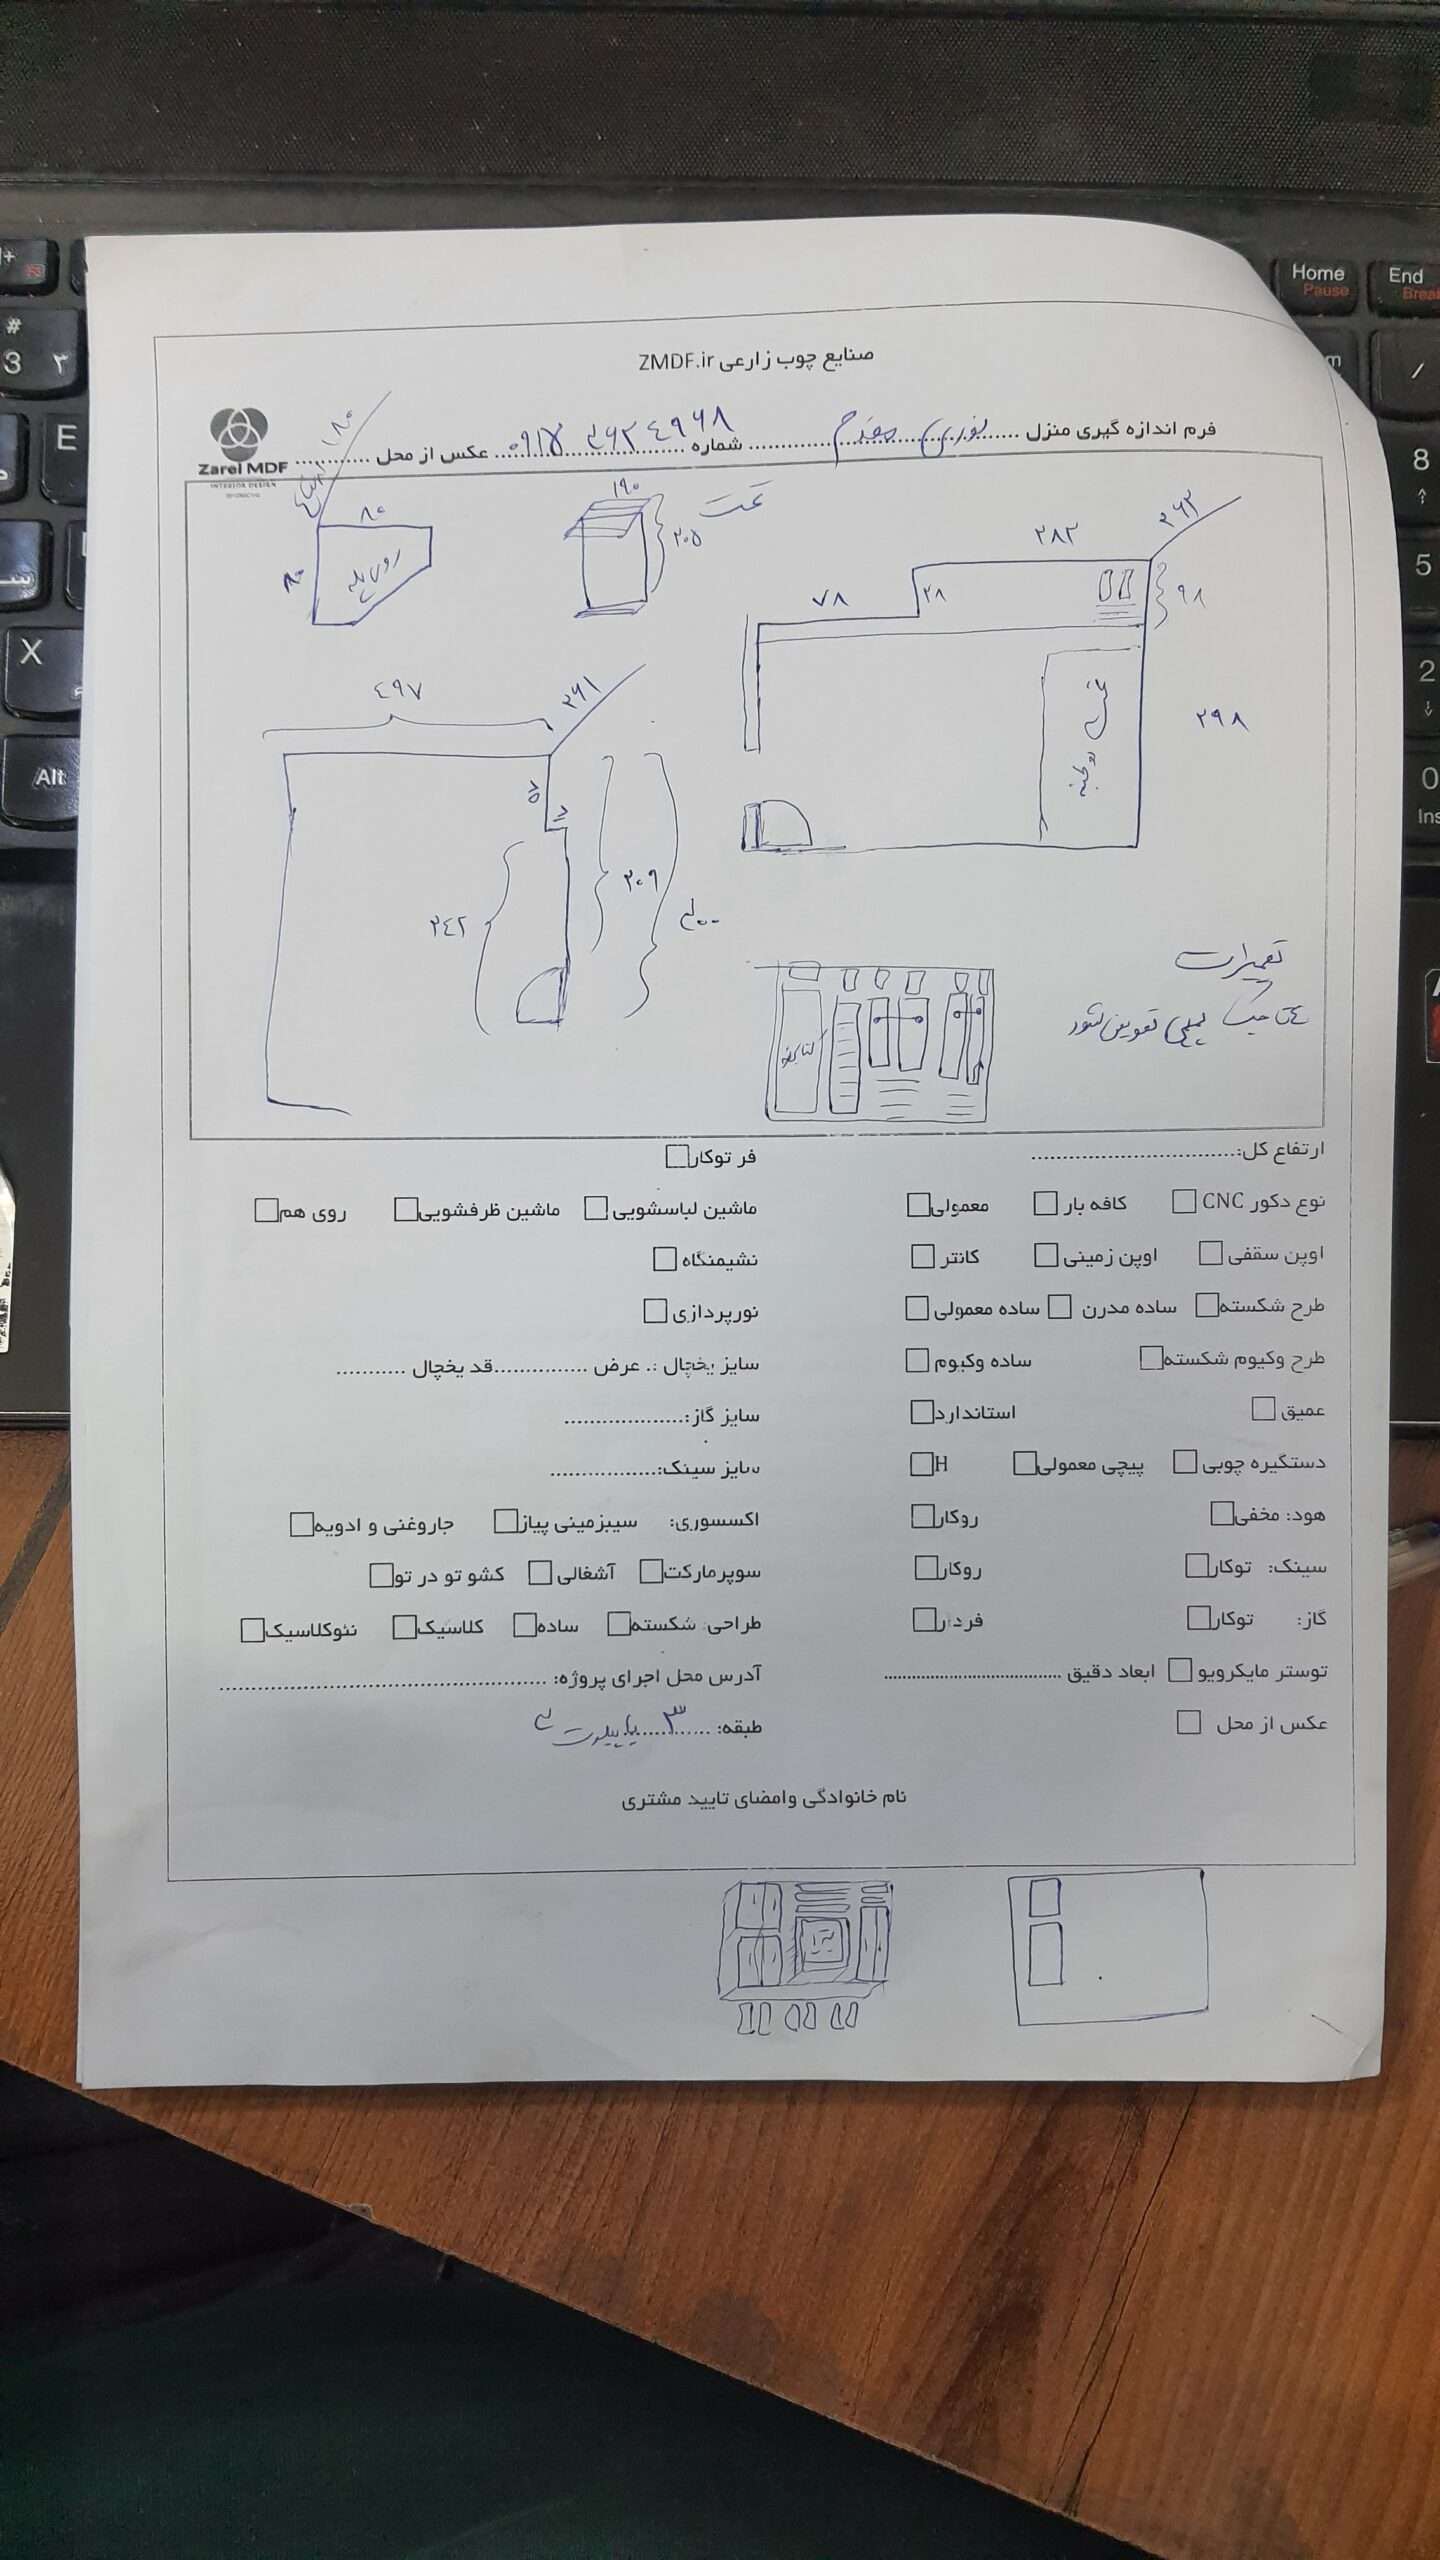 صنایع چوب زارعی ZMDF.ir
فرم اندازه گیری منزل .......... نوری مقدم .......... شماره .......... عکس از محل ..........
Zarei MDF
INTERIOR DESIGN
ارتفاع ۱۸۰
۸۰
۸۰
روی پله
تخت
۱۹۰
۲۰۵
۲۸۲
۲۶۲
۷۸
۲۸
۹۸
۲۹۸
۴۹۷
۲۶۱
۵۷
۲۰۹
۲۴۲
تعمیرات
تعویض شود
کتابخانه
ارتفاع کل:................................
فر توکار
نوع دکور CNC کافه بار معمولی
ماشین لباسشویی ماشین ظرفشویی روی هم
اوپن سقفی اوپن زمینی کانتر
نشیمنگاه
طرح شکسته ساده مدرن ساده معمولی
نورپردازی
طرح وکیوم شکسته ساده وکیوم
سایز یخچال :. عرض ...............قد یخچال ...........
عمیق استاندارد
سایز گاز:...................
دستگیره چوبی پیچی معمولی H
سایز سینک:.................
هود: مخفی روکار
اکسسوری: سیبزمینی پیاز جاروغنی و ادویه
سینک: توکار روکار
سوپرمارکت آشغالی کشو تو در تو
گاز: توکار فردار
طراحی: شکسته ساده کلاسیک نئوکلاسیک
توستر مایکرویو ابعاد دقیق ......................................
آدرس محل اجرای پروژه: ....................................................
عکس از محل
طبقه: .......۳....... با پیلوت
نام خانوادگی وامضای تایید مشتری
Home
Pause
End
3
۳
E
X
Alt
8
5
2
0
Ins